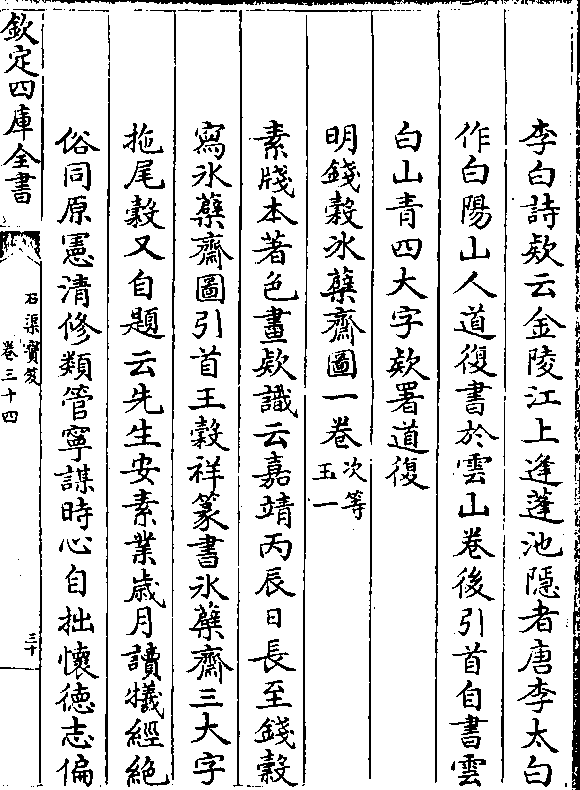 李白詩欵云金陵江上逢蓬池隱者唐李太白
作白陽山人道復書於雲山卷後引首自書雲
白山青四大字欵署道復
明錢榖氷蘖齋圖一卷次等玉一
素牋本著色畫欵識云嘉靖丙辰日長至錢榖
寫氷蘖齋圖引首王榖祥篆書氷蘖齋三大字
拖尾榖又自題云先生安素業歲月讀犧經絶
俗同原憲清修類管寧謀時心自拙懷徳志偏
欽定四庫全書
石渠寶笈
卷三十四
三十